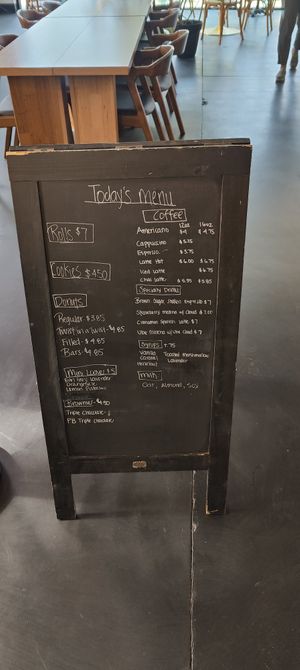 Today's menu
Rolls $7
Cookies $4.50
Donuts
Regular $3.85
Twist in a twist $4.85
Filled $4.85
Bars $4.85
Mini Loaves $5
Earl Grey Lavender
Lemon
Brownies $4.50
Triple Chocolate
PB Triple Chocolate
Coffee
12oz 16oz
Americano $4 $4.75
Cappuccino $5.75
Espresso $3.75
Latte Hot $6.00 $6.75
Iced Latte $6.75
Chai Latte $5.35 $5.85
Specialty Drinks
Brown Sugar Shaken Espresso $7
Strawberry Matcha w/ Cloud $7.00
Cinnamon Latte $7
Ube Matcha w/ Ube Cloud $7
Syrups .75
Vanilla Toasted Marshmallow
Caramel Lavender
Hazelnut
Milk
Oat, Almond, Soy